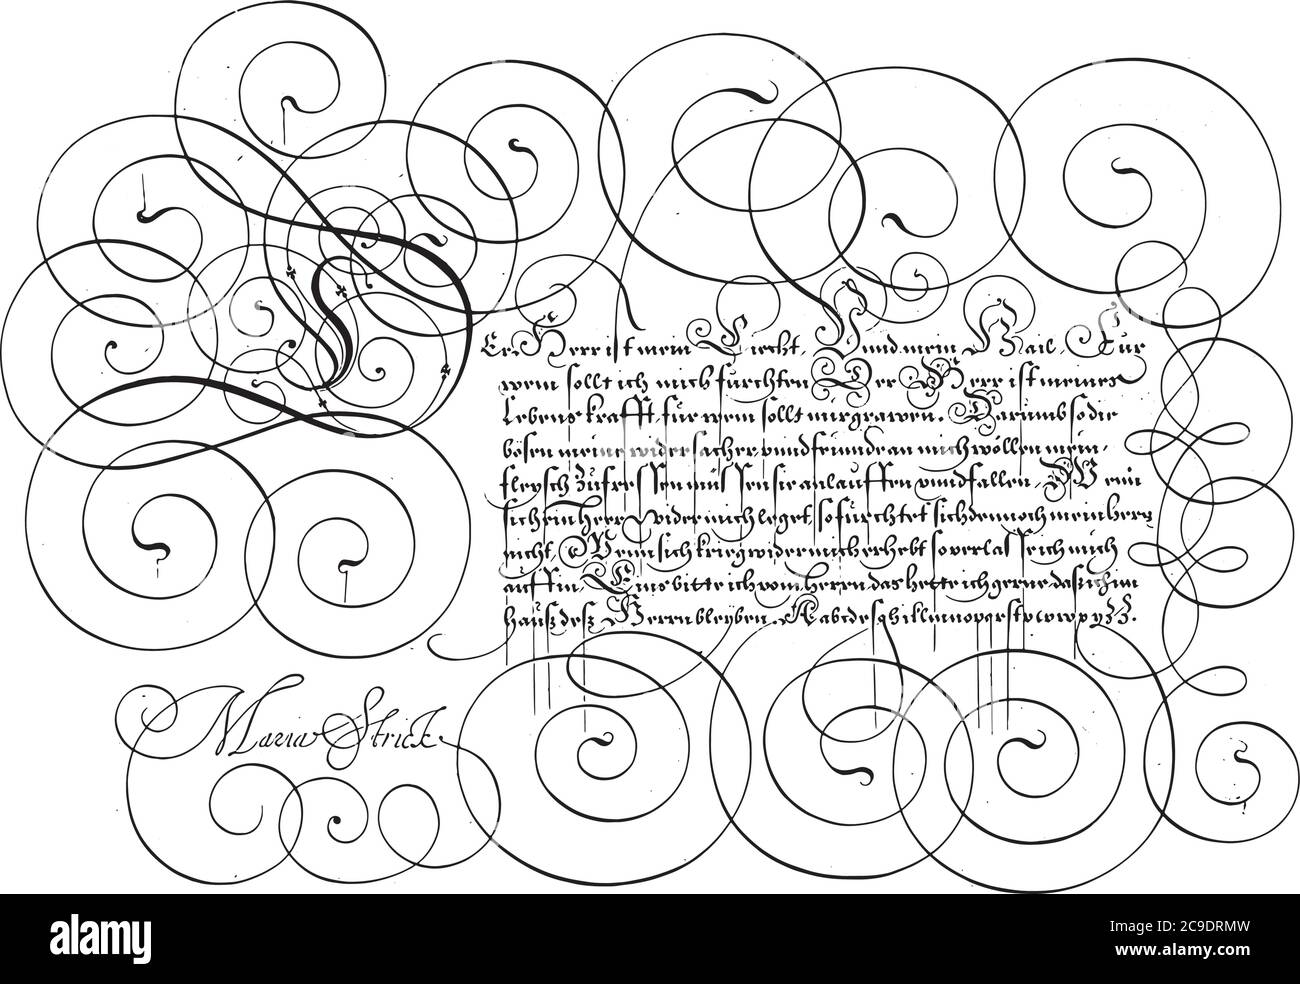 Er Herr ist mein Liecht, Vnnd mein Hail, Für
wem sollt ich mich fürchten Der Herr ist meines
Lebens krafft, für wem sollt mir grawen, Darumb so die
bösen meine widersacher vnnd feinnde an mich wöllen mein
fleysch zu fressen müssen sie anlauffen vnnd fallen, Wenn
sich ein Herr wider mich leget, so fürchtet sich dennoch mein herz
nicht, Wenn sich krieg wider mich erhebt so verlass ich mich
auff in, Eins bitte ich vom herren das hette ich gerne dasz ich im
hausz desz Herren bleyben. Aabcdefghikllmnopqrstvwxyzz.
Maria Strick
alamy
Image ID: 2C9DRMW
www.alamy.com